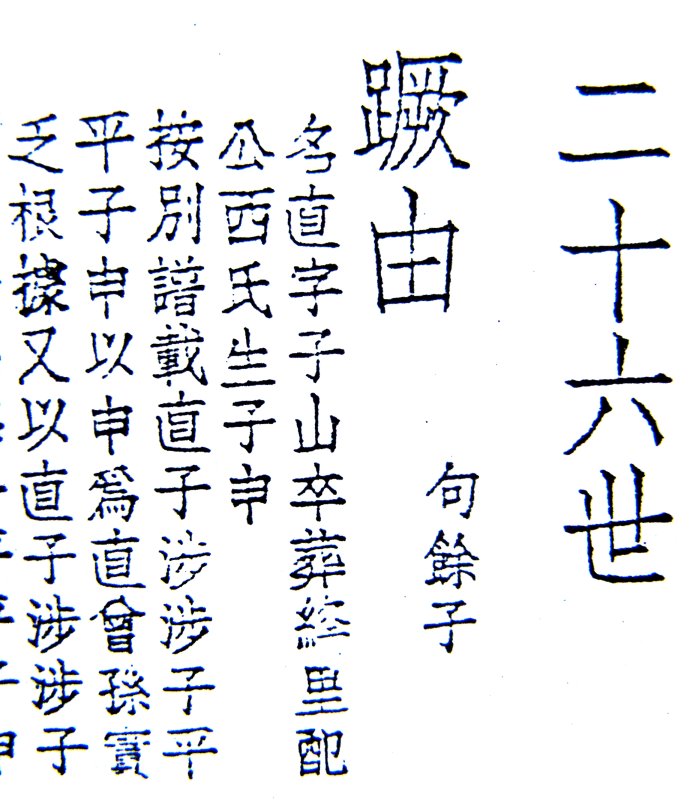 二十六世
蹶由
句餘子
名直字子山卒葬經里配
公西氏生子申
按別譜載直子涉涉子平
平子申以申爲直曾孫實
乏根據又以直子涉涉子